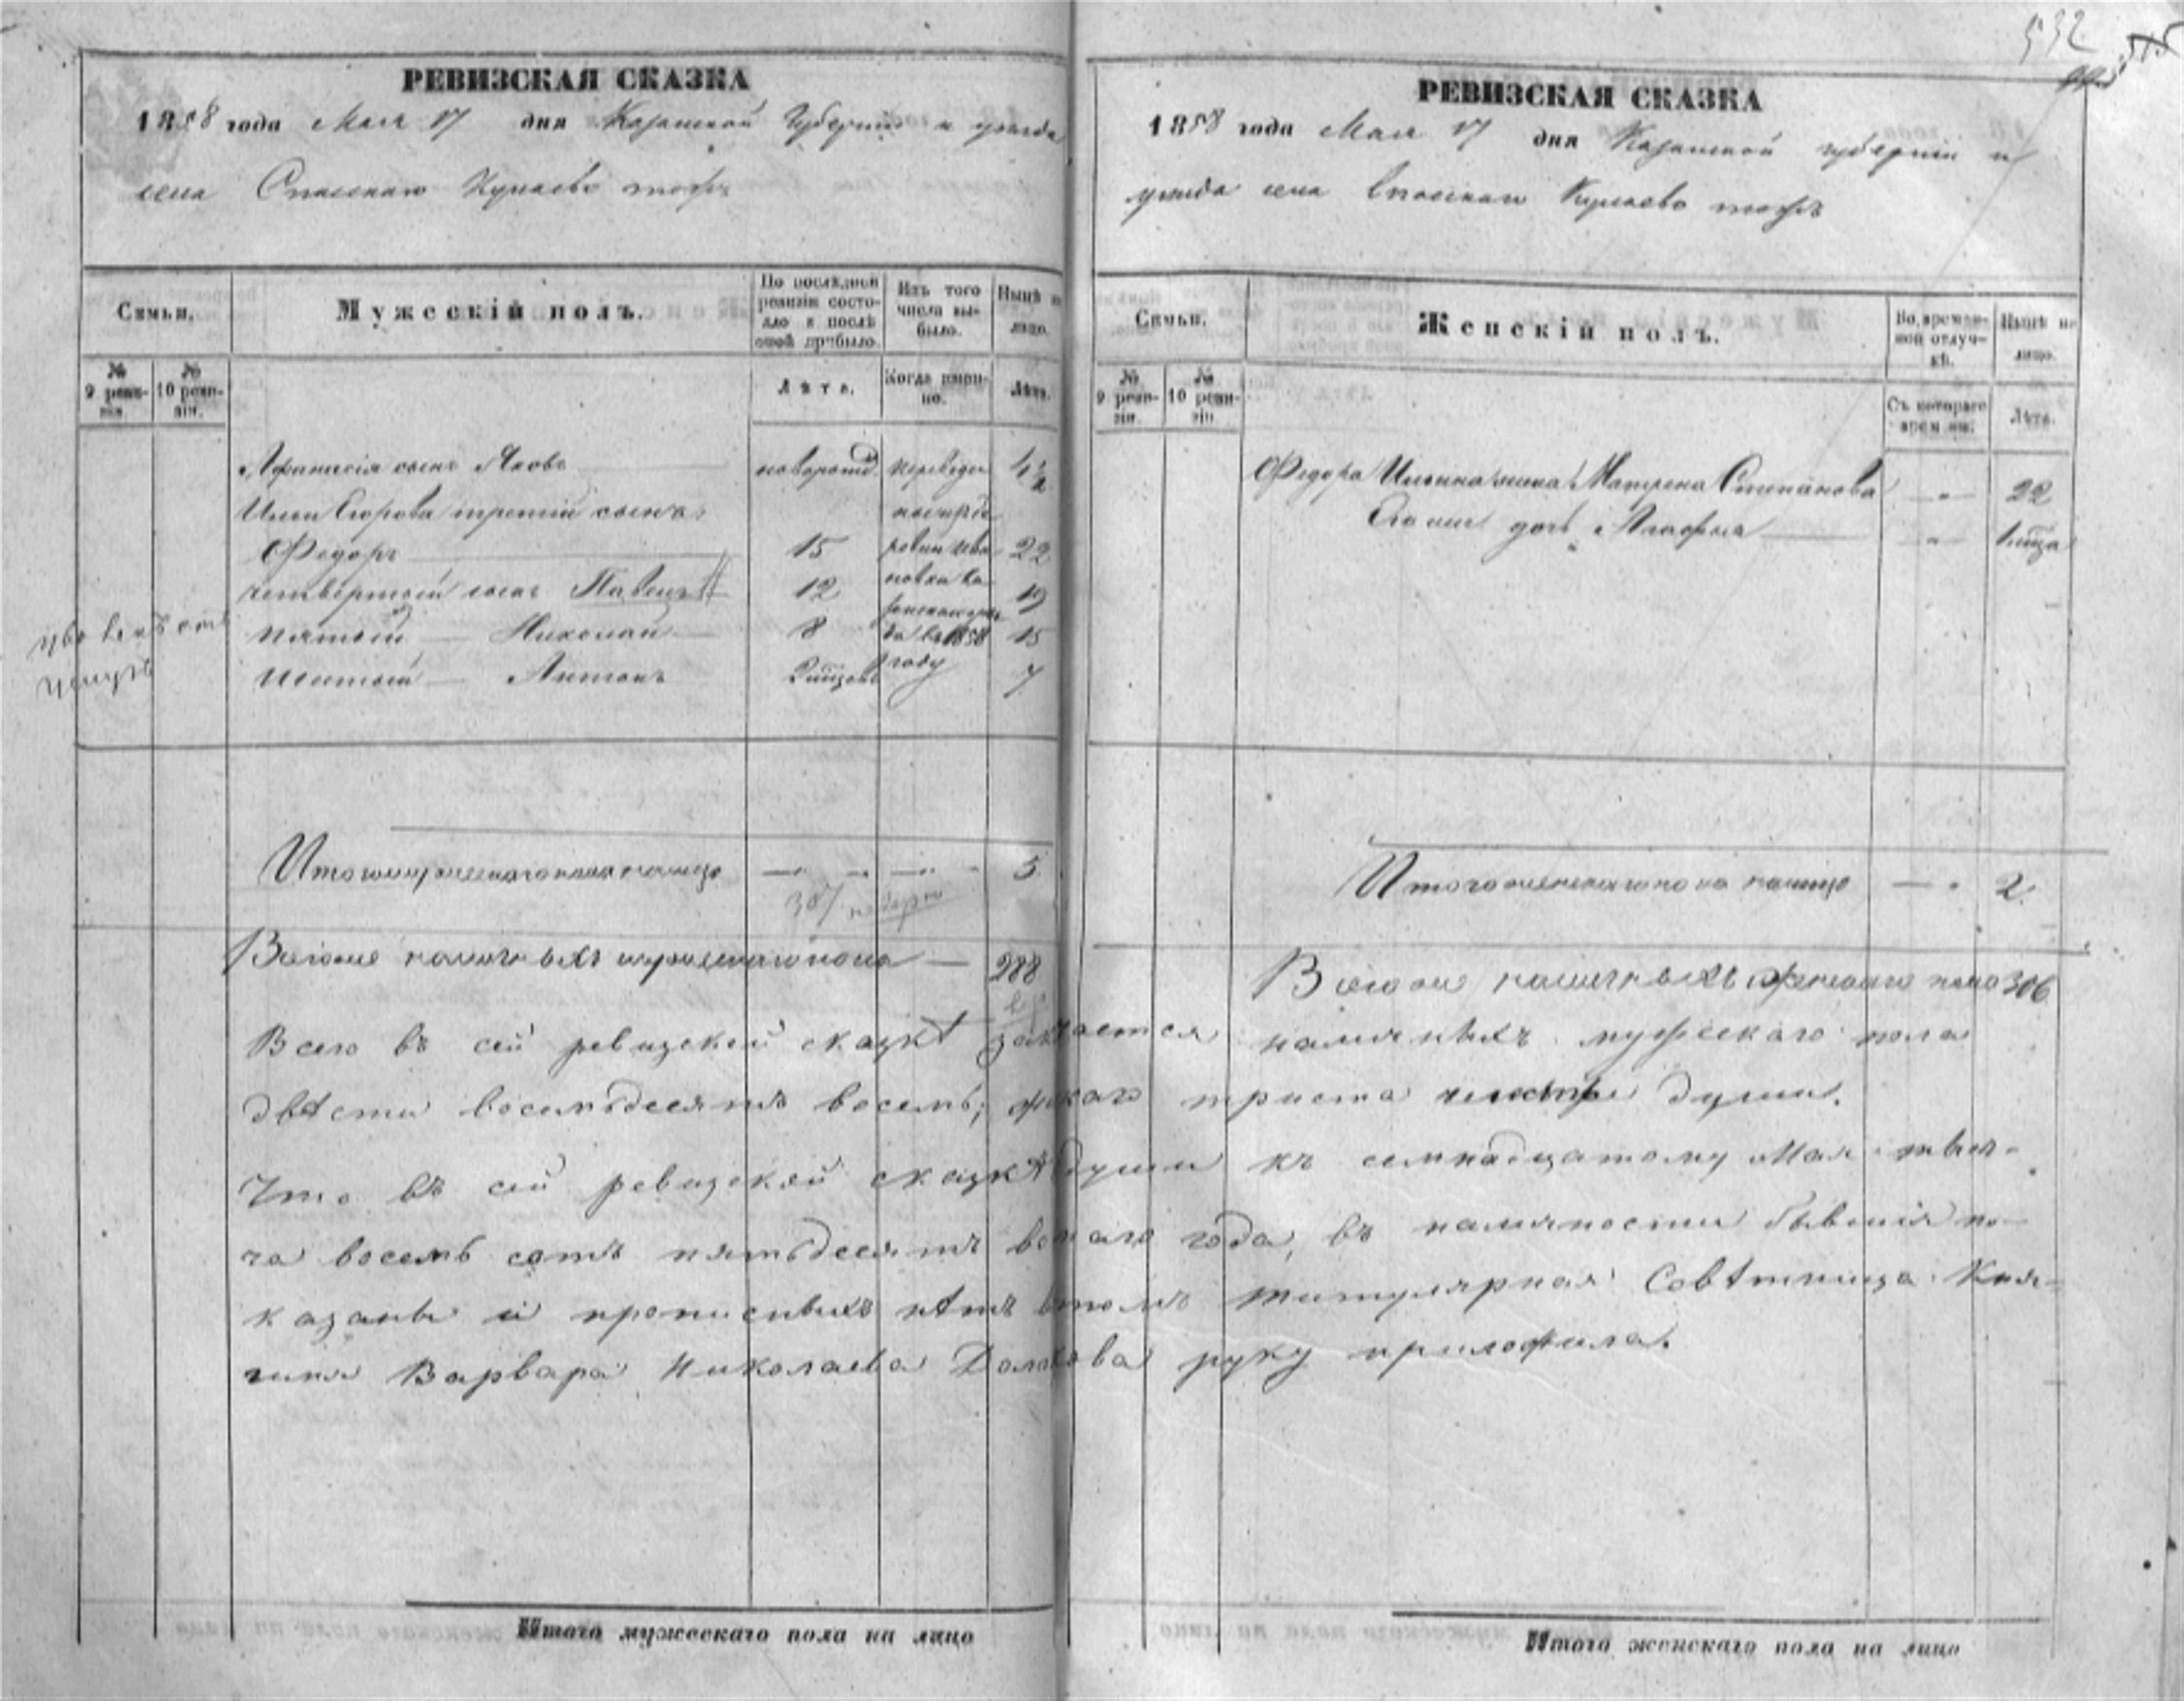 532
515
РЕВИЗСКАЯ СКАЗКА
1858 года Мая 17 дня Казанской Губернии и уезда
села Спаскаго Кулаево тожъ
Семьи.
Мужескій полъ.
По послѣдней ревизіи состояло и послѣ оной прибыло.
Изъ того числа выбыло.
Нынѣ на лицо.
№ 9 ревизіи.
№ 10 ревизіи.
Лѣта.
Когда именно.
Лѣта.
Афанасія сынъ Яковъ новорожд переведен 4½
Ильи Егорова третій сынъ
Федоръ 15 22
четвертый сынъ Павелъ 12 19
пятый — Николай — 8 да въ 1858 15
шестой — Антонъ году 7
Итого мужескаго пола на лицо 5
387 неверно
Всего наличныхъ мужескаго пола — 288
РЕВИЗСКАЯ СКАЗКА
1858 года Мая 17 дня Казанской губерніи и
уезда села Спаскаго Кулаево тожъ
Семьи.
Женскій полъ.
Во временной отлучкѣ.
Нынѣ на лицо.
№ 9 ревизіи.
№ 10 ревизіи.
Съ котораго времени.
Лѣта.
Федора Ильина жена Матрена Степанова — 22
Ея дочь Агафья
Итого женскаго пола на лицо — 2
Всего наличныхъ женскаго пола 306
Всего въ сей ревизской сказкѣ значется наличныхъ мужескаго пола
двѣсти восемьдесятъ восемь; женскаго триста шесть души.
Что въ сей ревизской сказкѣ души къ семнадцатому Мая тыся-
ча восемь сотъ пятьдесятъ восьмаго года, въ наличности бывшія по-
казаны и прописныхъ нѣтъ въ томъ титулярная Совѣтница Кня-
гиня Варвара Николаева Болховская руку приложила.
Итого мужескаго пола на лицо
Итого женскаго пола на лицо